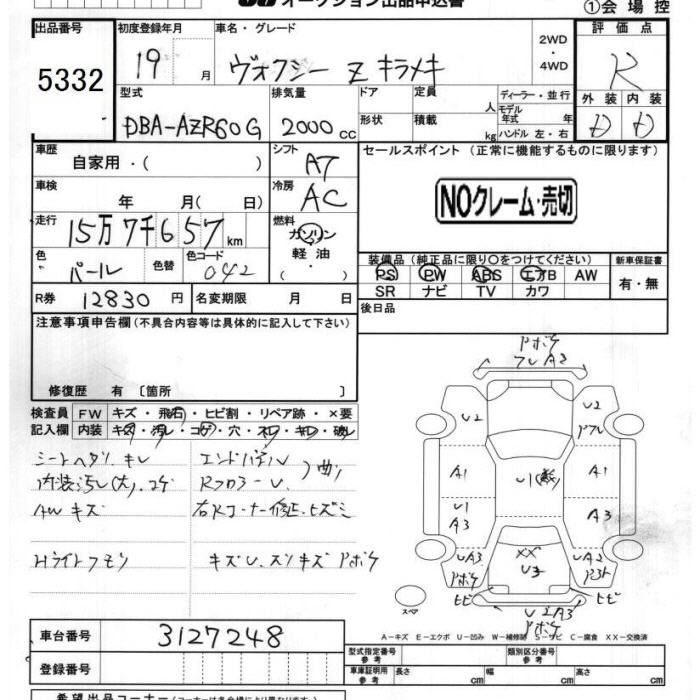 オークション出品申込書
①会場控
出品番号
5332
初度登録年月
19 月
車名・グレード
ヴォクシー Z キラメキ
2WD
・
4WD
評価点
R
外装 内装
D D
型式
DBA-AZR60G
排気量
2000 cc
ドア
形状
定員 人
積載 kg
ディーラー・並行
モデル
年式 年
ハンドル 左・右
車歴
自家用・( )
シフト
AT
車検
年 月( 日)
冷房
AC
走行
15万7千657 km
燃料
ガソリン
軽油
( ・ )
色
パール
色替
色コード
042
R券 12830 円
名変期限 月 日
セールスポイント (正常に機能するものに限ります)
NOクレーム・売切
装備品 (純正品に限り○をつけてください)
PS PW ABS エアB AW
SR ナビ TV カワ
新車保証書
有・無
後日品
注意事項申告欄 (不具合内容等は具体的に記入して下さい)
修復歴 有 〔箇所 〕
検査員
記入欄
FW キズ・飛石・ヒビ割・リペア跡・×要
内装 キズ・汚レ・コゲ・穴・スレ・キレ・破レ
シートヘタリ、キレ
内装汚レ(大)、コゲ
AWキズ
Hライトクモリ
エンドパネル
Rフロアー U、
曲り
右Rコーナー修正、ヒズミ
キズU、スリキズ Pボケ
Pボケ
フU A3
U2
U2
Pフル
A1
A1
U1
U1
A3
A3
UA3
Pボケ
XX
U3
UA2
ヒビ
ヒビ
U2A3
Pボケ
スペア
A－キズ E－エクボ U－凹み W－補修跡 S－サビ C－腐食 XX－交換済
車台番号 3127248
登録番号
型式指定番号
参考
類別区分番号
参考
車庫証明用
参考
長さ cm 幅 cm 高さ cm
希望出品コーナー